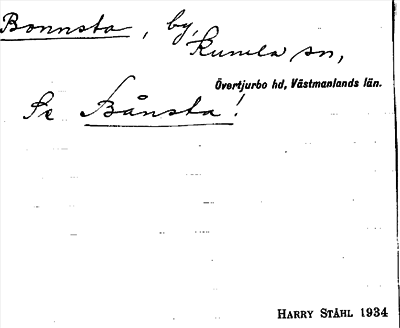 Bonnsta, by,
Kumla sn,
Övertjurbo hd, Västmanlands län.
Se Bånsta!
HARRY STÅHL 1934